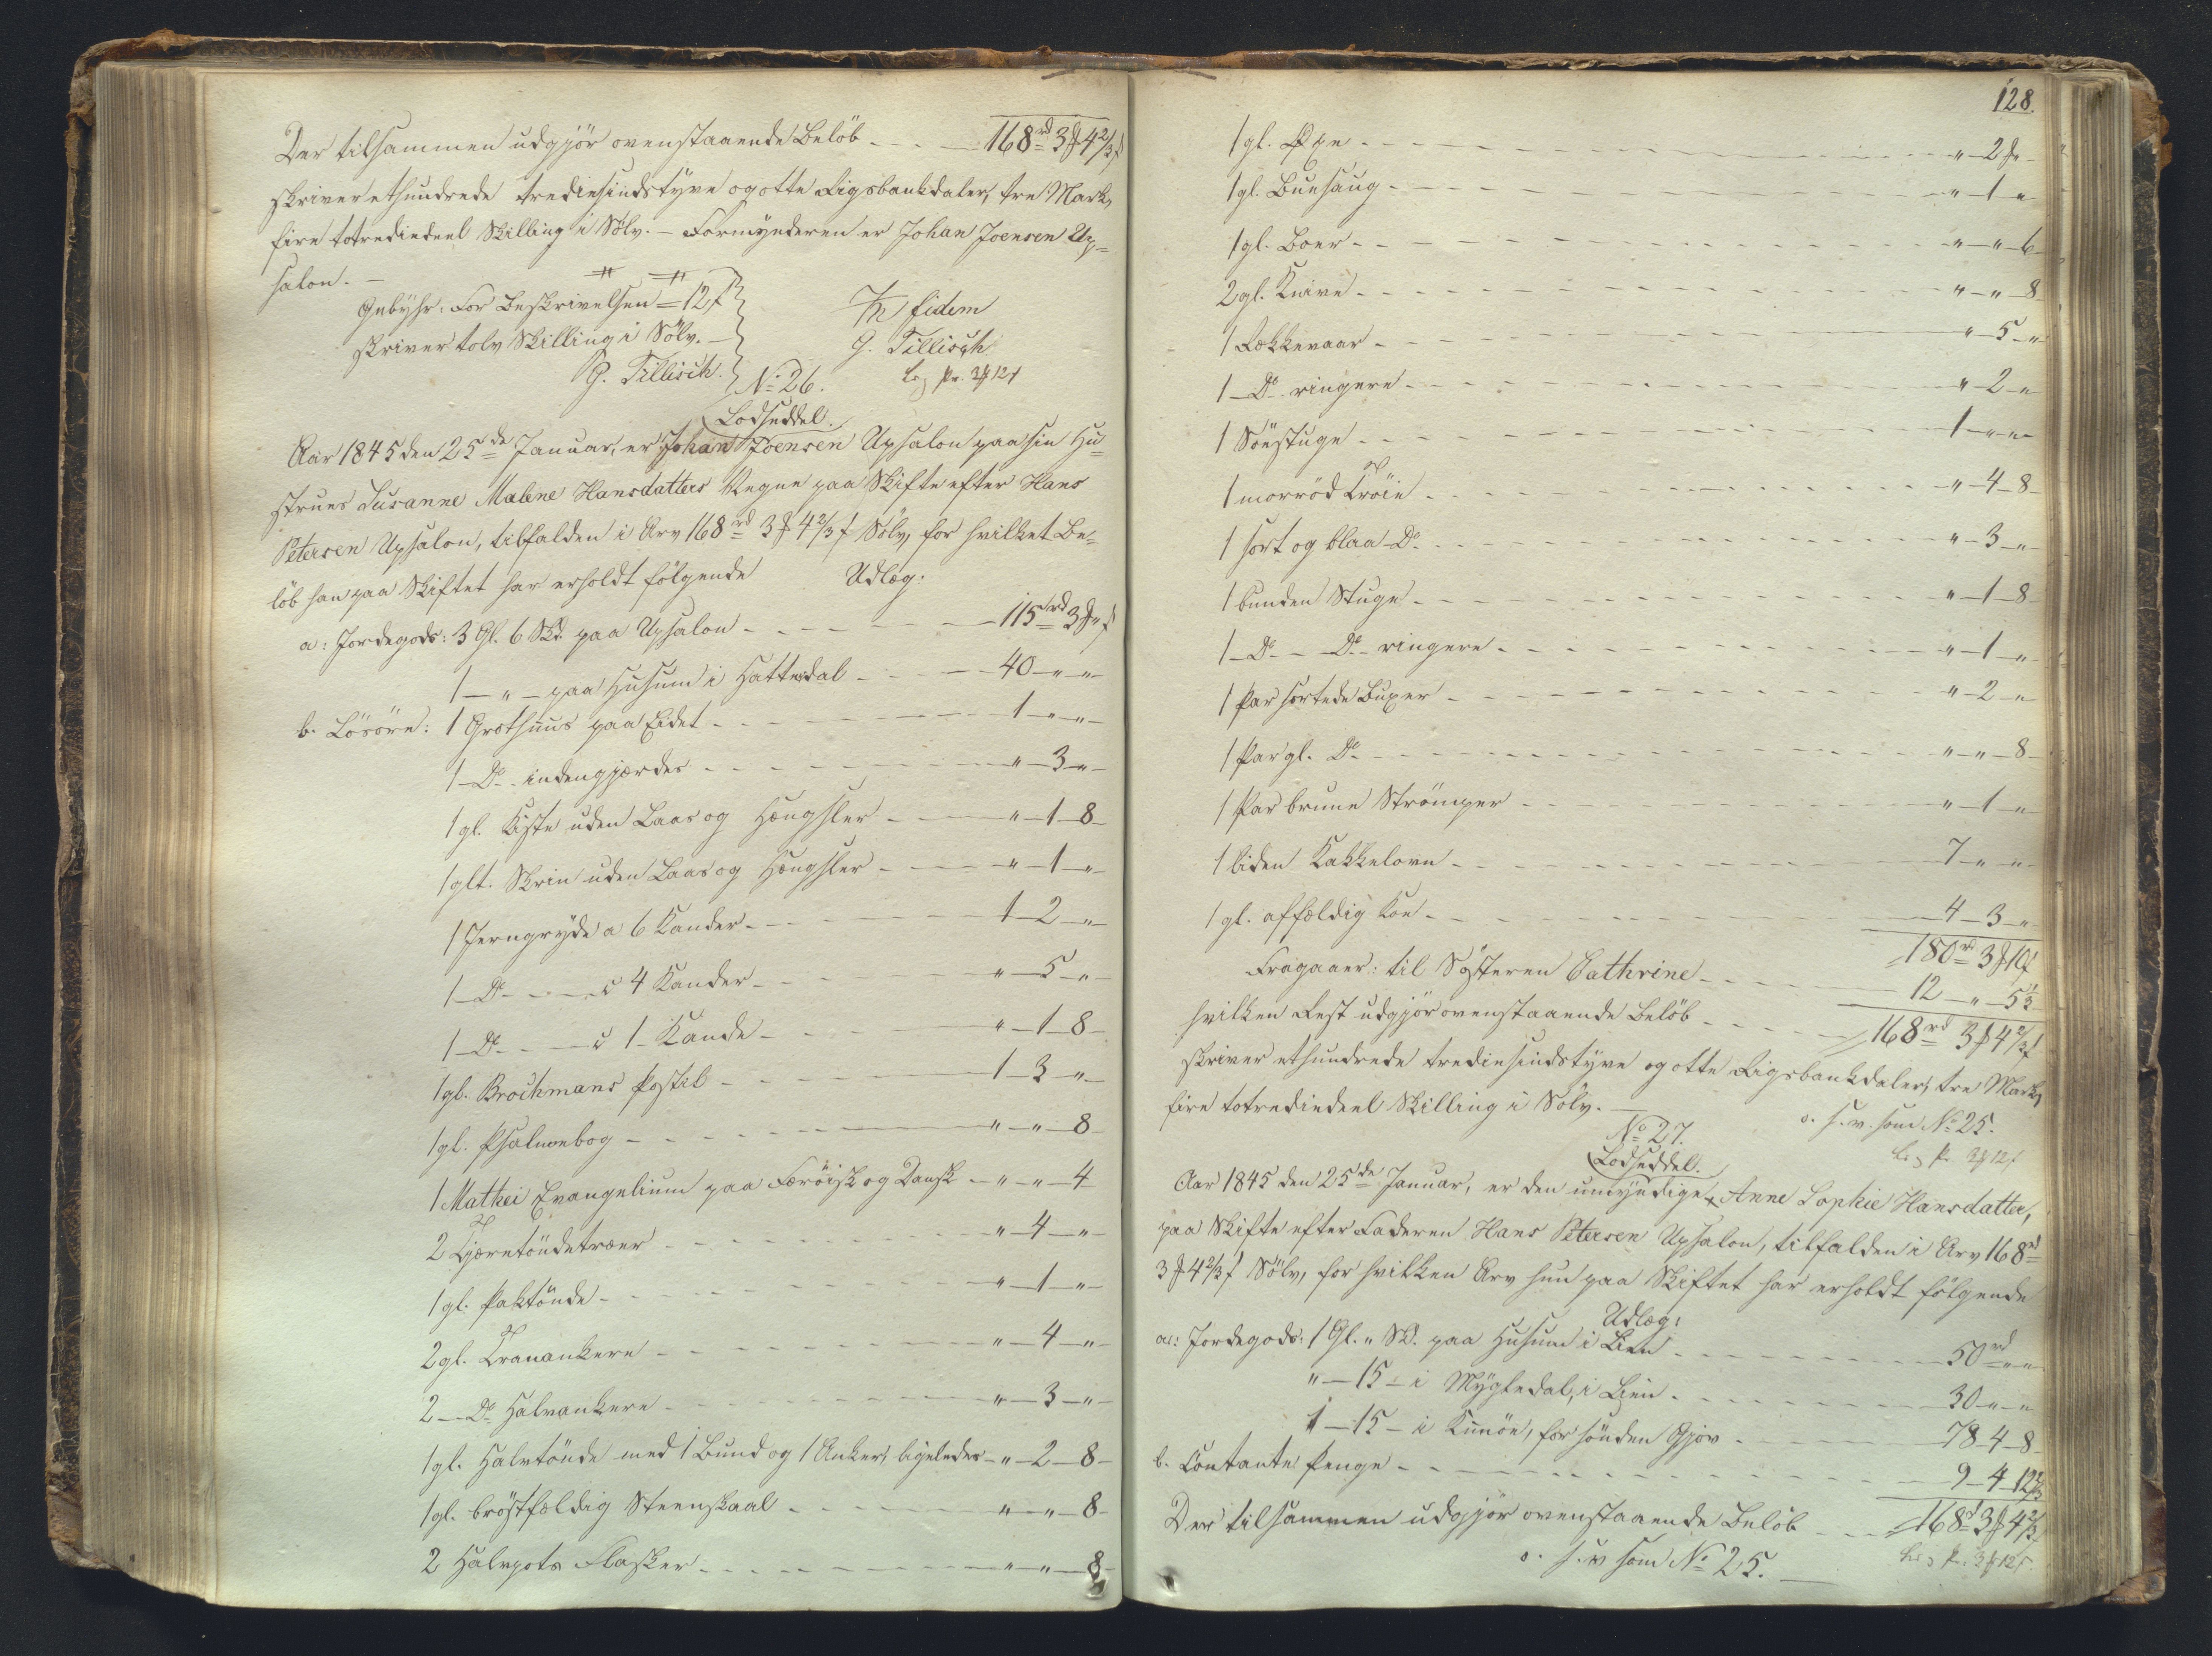 Der tilsammen udgjör ovenstaaende Belöb 168 rd 3 # 4 2/3 s
skriver ethundrede trediesindstyve og otte Rigsbankdaler, tre Mark,
fire totrediedeel Skilling i Sölv. – Formynderen er Johan Joensen Up=
salon. –
Gebyhr: For Beskrivelsen = 12 s
skriver tolv Skilling i Sölv. –
G. Tillisch.
In fidem
G. Tillisch
No 26.
Lodseddel.
Aar 1845 den 25de Januar, er Johan Joensen Upsalon paa sin Hu=
strues Susanne Malene Hansdatters Vegne paa Skifte efter Hans
Petersen Upsalon, tilfalden i Arv 168 rd 3 # 4 2/3 s Sölv, for hvilket Be=
löb han paa Skiftet har erholdt fölgende Udlæg:
a: Jordegods: 3 Gl. 6 Sk. paa Upsalon 115 rd 3 # " s
1 – " – paa Husum i Hattedal 40 – " – "
b. Lösöre: 1 Grothuus paa Eidet 1 – " – "
1 – Do indengjærdes " – 3 – "
1 gl. Kiste uden Laas og Hængsler " – 1 – 8
1 glt. Skrin uden Laas og Hængsler " – 1 – "
1 Jerngryde a 6 Kander 1 – 2 – "
1 – Do – a 4 Kander " – 5 – "
1 – Do – a 1 Kande " – 1 – 8
1 gl. Brochmans Postil 1 – 3 – "
1 gl. Psalmebog " – " – 8
1 Mathei Evangelium paa Færöisk og Dansk " – " – 4
2 Tjæretöndetræer " – 4 – "
1 gl. Saltönde " – 1 – "
2 gl. Tranankere " – 4 – "
2 – Do Halvankere " – 3 – "
1 gl. Halvtönde med 1 Bund og 1 Anker, ligeledes " – 2 – 8
1 gl. bröstfældig Steenskaal " – " – 8
2 Halvpots Flasker " – " – 8
128.
1 gl. Öxe " – 2 # –
1 gl. Buesaug " – 1 – "
1 gl. Boer " – " – 6
2 gl. Knive " – " – 8
1 Rækkevaar " – 5 – "
1 – Do ringere " – 2 – "
1 Söestuge 1 – " – "
1 morröd Tröie " – 4 – 8
1 sort og blaa Do " – 3 – "
1 bunden Stuge " – 1 – 8
1 – Do – Do ringere " – 1 – "
1 Par sortede Buxer " – 2 – "
1 Par gl. Do " – " – 8
1 Par brune Strömper " – 1 – "
1 liden Kakkelovn 7 – " – "
1 gl. affældig Koe 4 – 3 – "
180 rd 3 # 10 s
Fragaaer: til Systeren Cathrine 12 – " – 5 1/3
hvilken Rest udgjör ovenstaaende Belöb 168 rd 3 # 4 2/3 s
skriver ethundrede trediesindstyve og otte Rigsbankdaler, tre Mark,
fire totrediedeel Skilling i Sölv. –
o. s. v. som No 25.
No 27.
Lodseddel.
Aar 1845 den 25de Januar, er den umyndige, Anne Sophie Hansdatter,
paa Skifte efter Faderen Hans Petersen Upsalon, tilfalden i Arv 168 rd
3 # 4 2/3 s Sölv, for hvilken Arv hun paa Skiftet har erholdt fölgende
Udlæg:
a: Jordegods: 1 Gl. " Sk. paa Husum i Lien 50 rd " – "
" – 15 – i Mygledal, i Lien 30 – " – "
1 – 15 – i Kunöe, for sönden Gjov 78 – 4 – 8
b. Contante Penge 9 – 4 – 12 2/3
Der tilsammen udgjör ovenstaaende Belöb 168 rd 3 # 4 2/3
o. s. v som No 25.